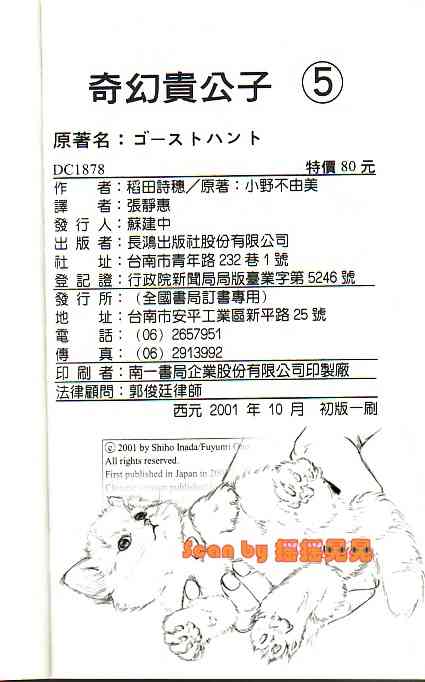 奇幻貴公子 ⑤
原著名：ゴーストハント
DC1878 特價 80 元
作者：稻田詩穗／原著：小野不由美
譯者：張靜惠
發行人：蘇建中
出版者：長鴻出版社股份有限公司
社址：台南市青年路 232 巷 1 號
登記證：行政院新聞局局版臺業字第 5246 號
發行所：（全國書局訂書專用）
地址：台南市安平工業區新平路 25 號
電話：（06）2657951
傳真：（06）2913992
印刷者：南一書局企業股份有限公司印製廠
法律顧問：郭俊廷律師
西元 2001 年 10 月 初版一刷
© 2001 by Shiho Inada/Fuyumi
All rights reserved.
First published in Japan in
Scan by